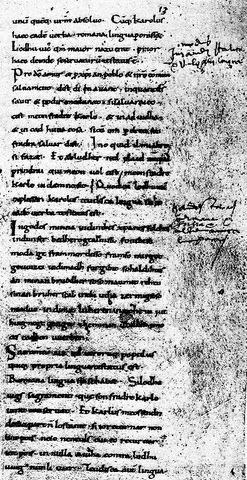 13
unu quoq; urm absoluo. Cuq; karolus
haec eade uerba romana lingua perorasset.
Lodhuuic qm maior natu erat. prior
haec deinde se seruaturu testatus e.
Pro do amur & p xpian poblo & nro comun
saluament. dist di in auant. inquantds
sauir & podir medunat. si saluaraieo.
cist meon fradre karlo. & in adiudha.
& in cad huna cosa. sicu om p dreit son
fradra saluar dist. Ino quid il mialtre
si fazet. Et abludher nul plaid nuqua
prindrai qui meon uol cist. meon fradre
karle in damno sit. Quod cu lodhuuic
explesset. karolus teudisca lingua sic hec
eade uerba testatus est.
Ingodes minna indinthes xpanes folches
indunser bedhero gealtnissi. fonthese
moda ge frammordesso framso mirgot
geuuizci indimadh furgibit sohaldihtes
an minan bruodher soso manmit rehtu
sinan bruher scal inthi utha zermigso
maduo. indimit luheren innohein iut
hing nege ganga. zheminan uuillon imo
ce scadhen uuerhen.
Sacramentu aut qd utroru que populus
quique propria lingua testatus est.
Romana lingua sic se habet. Silodhu
uigs sagrament. que son fradre karlo
iurat conseruat. Et karlus meossendra
desuo part n lostanit. si io returnar non
lint pois. neio neneuls cui eo returnar
int pois. in nulla aiudha contra lodhu
uuig nun li iuer. Teudisca aut lingua